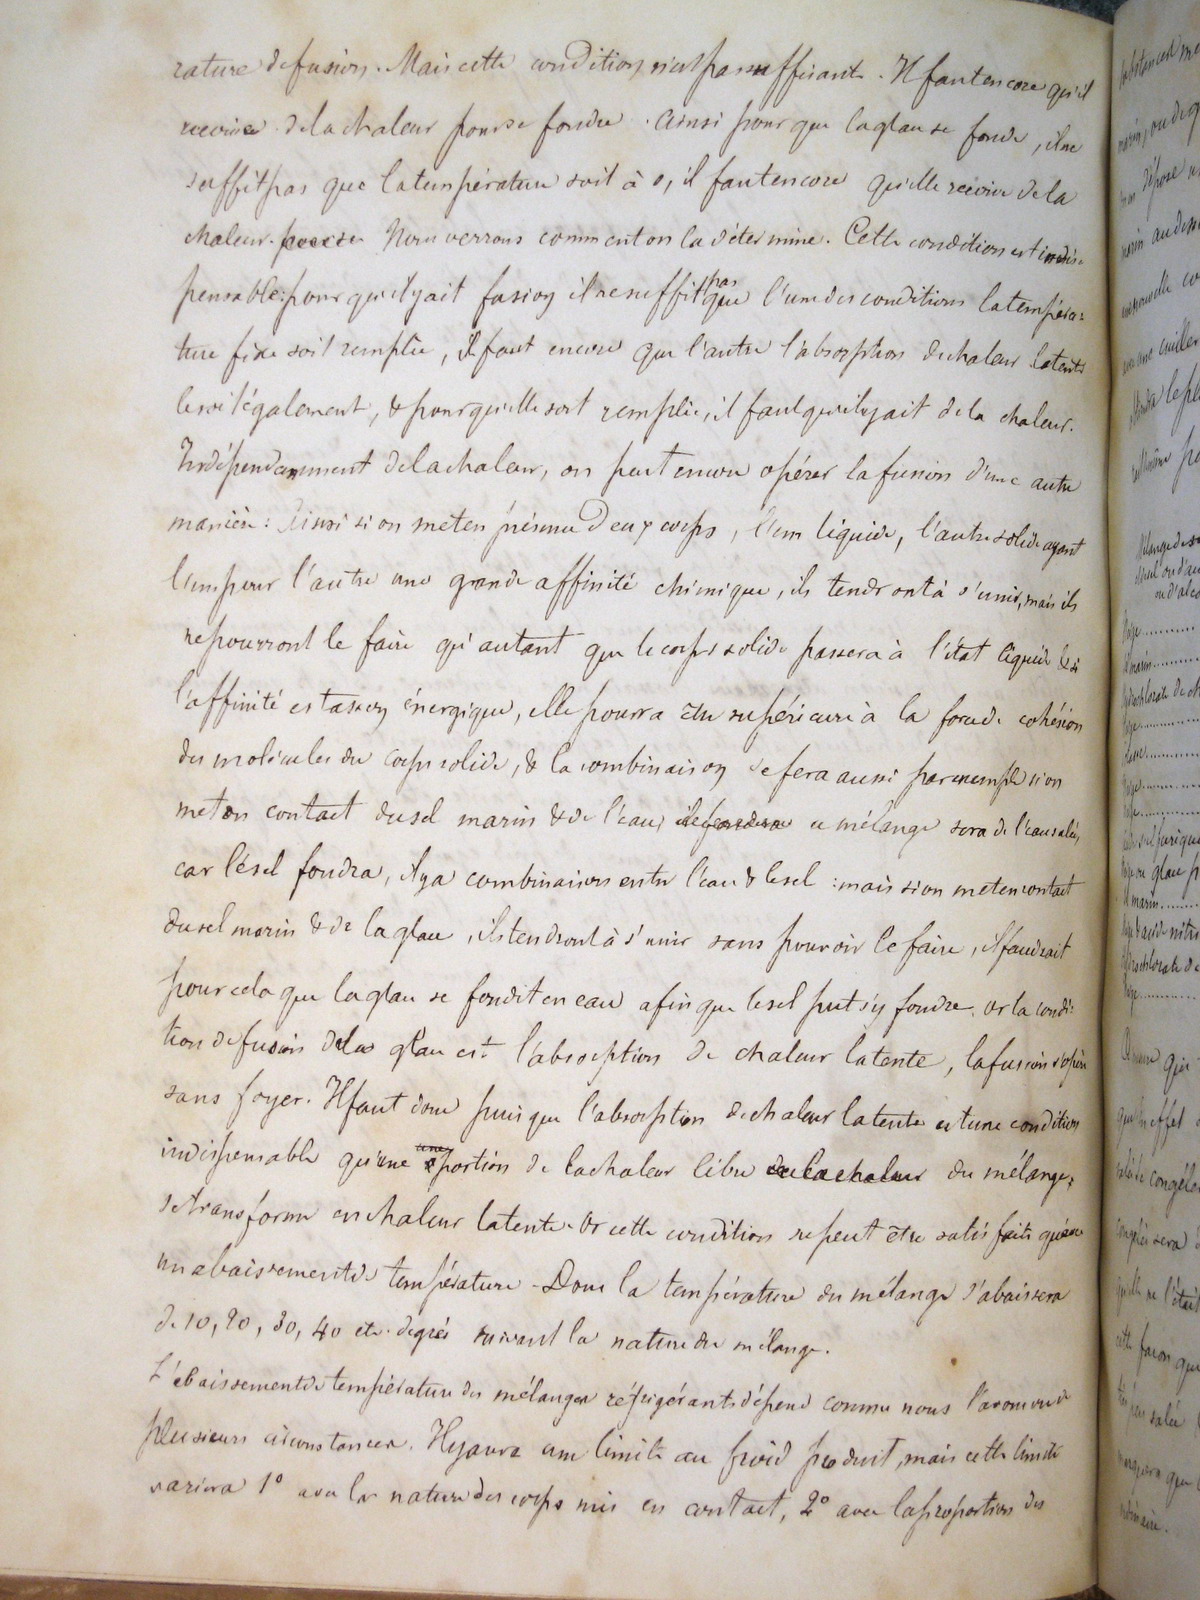 rature de fusion. Mais cette condition n'est pas suffisante. Il faut encore qu'il
reçoive de la chaleur pour se fondre. Ainsi pour que la glace se fonde, il ne
suffit pas que la température soit à 0, il faut encore qu'elle reçoive de la
chaleur. Nous verrons comment on la détermine. Cette condition est indis-
pensable: pour qu'il y ait fusion il ne suffit pas que l'une des conditions la tempéra-
ture fixe soit remplie, il faut encore que l'autre l'absorption de chaleur latente
le soit également, & pour qu'elle soit remplie, il faut qu'il y ait de la chaleur.
Indépendamment de la chaleur, on peut encore opérer la fusion d'une autre
manière: Ainsi si on met en présence deux corps, l'un liquide, l'autre solide ayant
l'un pour l'autre une grande affinité chimique, ils tendront à s'unir, mais ils
ne pourront le faire qu'autant que le corps solide passera à l'état liquide & si
l'affinité est assez énergique, elle pourra être supérieure à la force de cohésion
des molécules du corps solide, & la combinaison se fera aussi par exemple si on
met en contact du sel marin & de l'eau, il se fondra ce mélange sera de l'eau salée,
car le sel fondra, il y a combinaison entre l'eau & le sel: mais si on met en contact
du sel marin & de la glace, ils tendront à s'unir sans pouvoir le faire, il faudrait
pour cela que la glace se fondit en eau afin que le sel put s'y fondre. or la condi-
tion de fusion de la glace est l'absorption de chaleur latente, la fusion s'opère
sans foyer. Il faut donc puisque l'absorption de chaleur latente est une condition
indispensable qu'une portion de la chaleur libre de la chaleur du mélange,
se transforme en chaleur latente. Or cette condition ne peut être satisfaite qu'avec
un abaissement de température. Donc la température du mélange s'abaissera
de 10, 20, 30, 40 etc. degrés suivant la nature du mélange.
L'abaissement de température des mélanges réfrigérants dépend comme nous l'avons vu de
plusieurs circonstances. Il y aura une limite au froid produit, mais cette limite
variera 1° avec la nature des corps mis en contact, 2° avec la proportion des